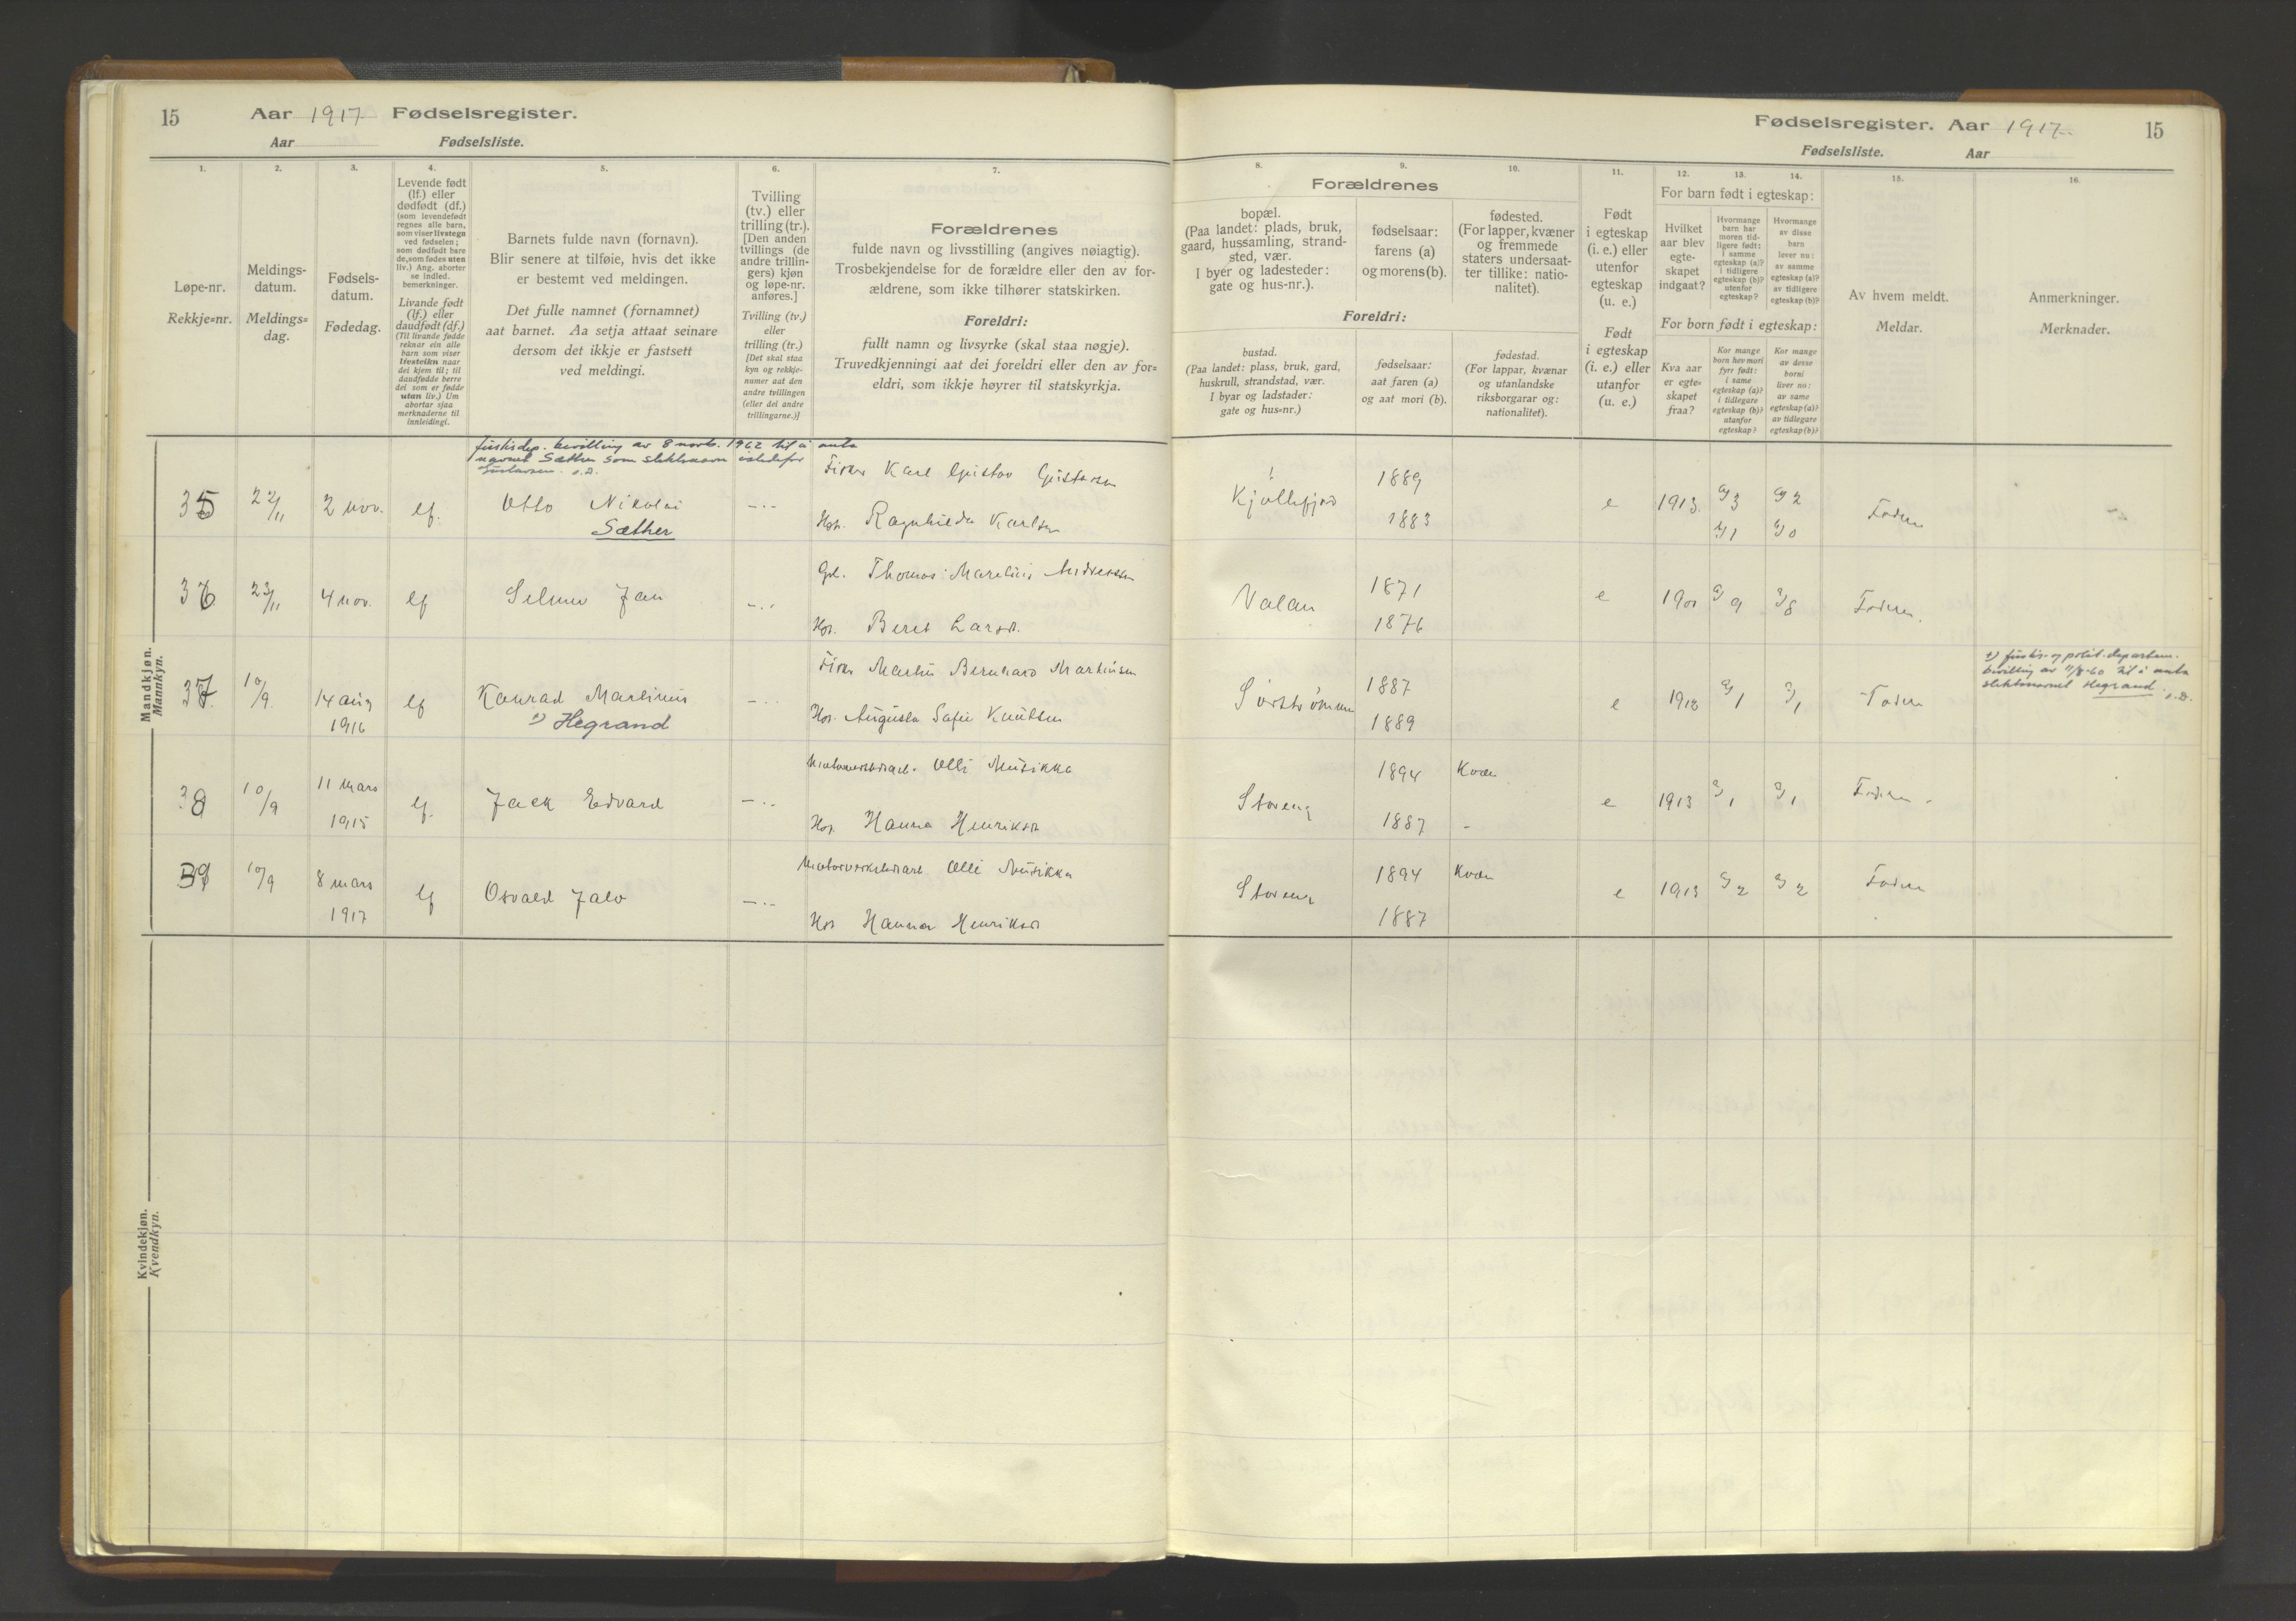 15 Aar 1917 Fødselsregister.
Aar Fødselsliste.
1.
Løpe-nr.
Rekkje=nr.
2.
Meldings-
datum.
Meldings=
dag.
3.
Fødsels-
datum.
Fødedag.
4.
Levende født
(lf.) eller
dødfødt (df.)
(som levendefødt
regnes alle barn,
som viser livstegn
ved fødselen;
som dødfødt bare
de, som fødes uten
liv.) Ang. aborter
se indled.
bemerkninger.
Livande født
(lf.) eller
daudfødt (df.)
(Til livande fødde
reknar ein alle
barn som viser
livsteikn naar
dei kjem til; til
daudfødde berre
dei som er fødde
utan liv.) Um
abortar sjaa
merknaderne til
innleidingi.
5.
Barnets fulde navn (fornavn).
Blir senere at tilføie, hvis det ikke
er bestemt ved meldingen.
Det fulle namnet (fornamnet)
aat barnet. Aa setja attaat seinare
dersom det ikkje er fastsett
ved meldingi.
6.
Tvilling
(tv.) eller
trilling (tr.).
[Den anden
tvillings (de
andre trillin-
gers) kjøn
og løpe-nr.
anføres.]
Tvilling (tv.)
eller
trilling (tr.)
[Det skal staa
kyn og rekkje-
numer aat den
andre tvillingen
(eller dei andre
trillingarne.)]
7.
Forældrenes
fulde navn og livsstilling (angives nøiagtig).
Trosbekjendelse for de forældre eller den av for-
ældrene, som ikke tilhører statskirken.
Foreldri:
fullt namn og livsyrke (skal staa nøgje).
Truvedkjenningi aat dei foreldri eller den av for=
eldri, som ikkje høyrer til statskyrkja.
Mandkjøn.
Mannkyn.
Justisdep. bevilling av 8 novb. 1962 til å anta
navnet Sæther som slektsnavn istedefor
Gustavsen. s.D.
35 22/11 2 nov. lf. Otto Nikolai
Sæther
Fisker Karl Gustav Gustavsen
Hst. Ragnhilda Karlsen
36 23/11 4 nov. lf Selmer Jan
Thomas Marelius Andreassen
Hst. Beret Larsd.
37 10/9 14 aug
1916
lf Konrad Martinus
1) Hegrand
Fisker Martin Bernhard Martinsen
Hst. Augusta Sofie Knutsen
38 10/9 11 mars
1915
lf. Jack Edvard
Olli Musikka
Hst. Hanna Henriksd
39 10/9 8 mars
1917
lf Osvald Jalo
Olli Musikka
Hst Hanna Henriksd
Kvindekjøn.
Kvendkyn.
Fødselsregister. Aar 1917. 15
Fødselsliste. Aar
8.
Forældrenes
bopæl.
(Paa landet: plads, bruk,
gaard, hussamling, strand-
sted, vær.
I byer og ladesteder:
gate og hus-nr.).
Foreldri:
bustad.
(Paa landet: plass, bruk, gard,
huskrull, strandstad, vær.
I byar og ladstader:
gate og hus=nr.)
9.
fødselsaar:
farens (a)
og morens (b).
fødselsaar:
aat faren (a)
og aat mori (b).
10.
fødested.
(For lapper, kvæner
og fremmede
staters undersaat-
ter tillike: natio-
nalitet).
fødestad.
(For lappar, kvænar
og utanlandske
riksborgarar og:
nationalitet).
11.
Født
i egteskap
(i. e.) eller
utenfor
egteskap
(u. e.)
Født
i egteskap
(i. e.) eller
utanfor
(u. e.)
12. 13. 14.
For barn født i egteskap:
Hvilket
aar blev
egte-
skapet
indgaat?
Hvormange
barn har
moren tid-
ligere født:
i samme
egteskap (a)?
i tidligere
egteskap (b)?
utenfor
egteskap?
Hvormange
av disse
barn
lever nu:
av samme
egteskap (a)?
av tidligere
egteskap (b)?
For born født i egteskap:
Kva aar
er egte=
skapet
fraa?
Kor mange
born hev mori
fyrr født:
i same
egteskap (a)?
i tidlegare
egteskap (b)?
utanfor
egteskap?
Kor mange
av desse
borni
liver nu:
av same
egteskap (a)?
av tidlegare
egteskap (b)?
15.
Av hvem meldt.
Meldar.
16.
Anmerkninger.
Merknader.
Kjøllefjord 1889
1883
e 1913 a/3 a/2 Faderen
b/1 b/0
Valan 1871
1876
e 1900 a/9 a/8 Faderen.
Sørstrømmen 1887
1889
e 1912 a/1 a/1 Faderen
1) Justis- og polit.departem.
bevilling av 11/8-60 til å anta
slektsnavnet Hegrand. s.D.
Storeng 1894 Kvæn
1887 -
e 1913 a/1 a/1 Faderen
Storeng 1894 Kvæn
1887
e 1913 a/2 a/2 Faderen